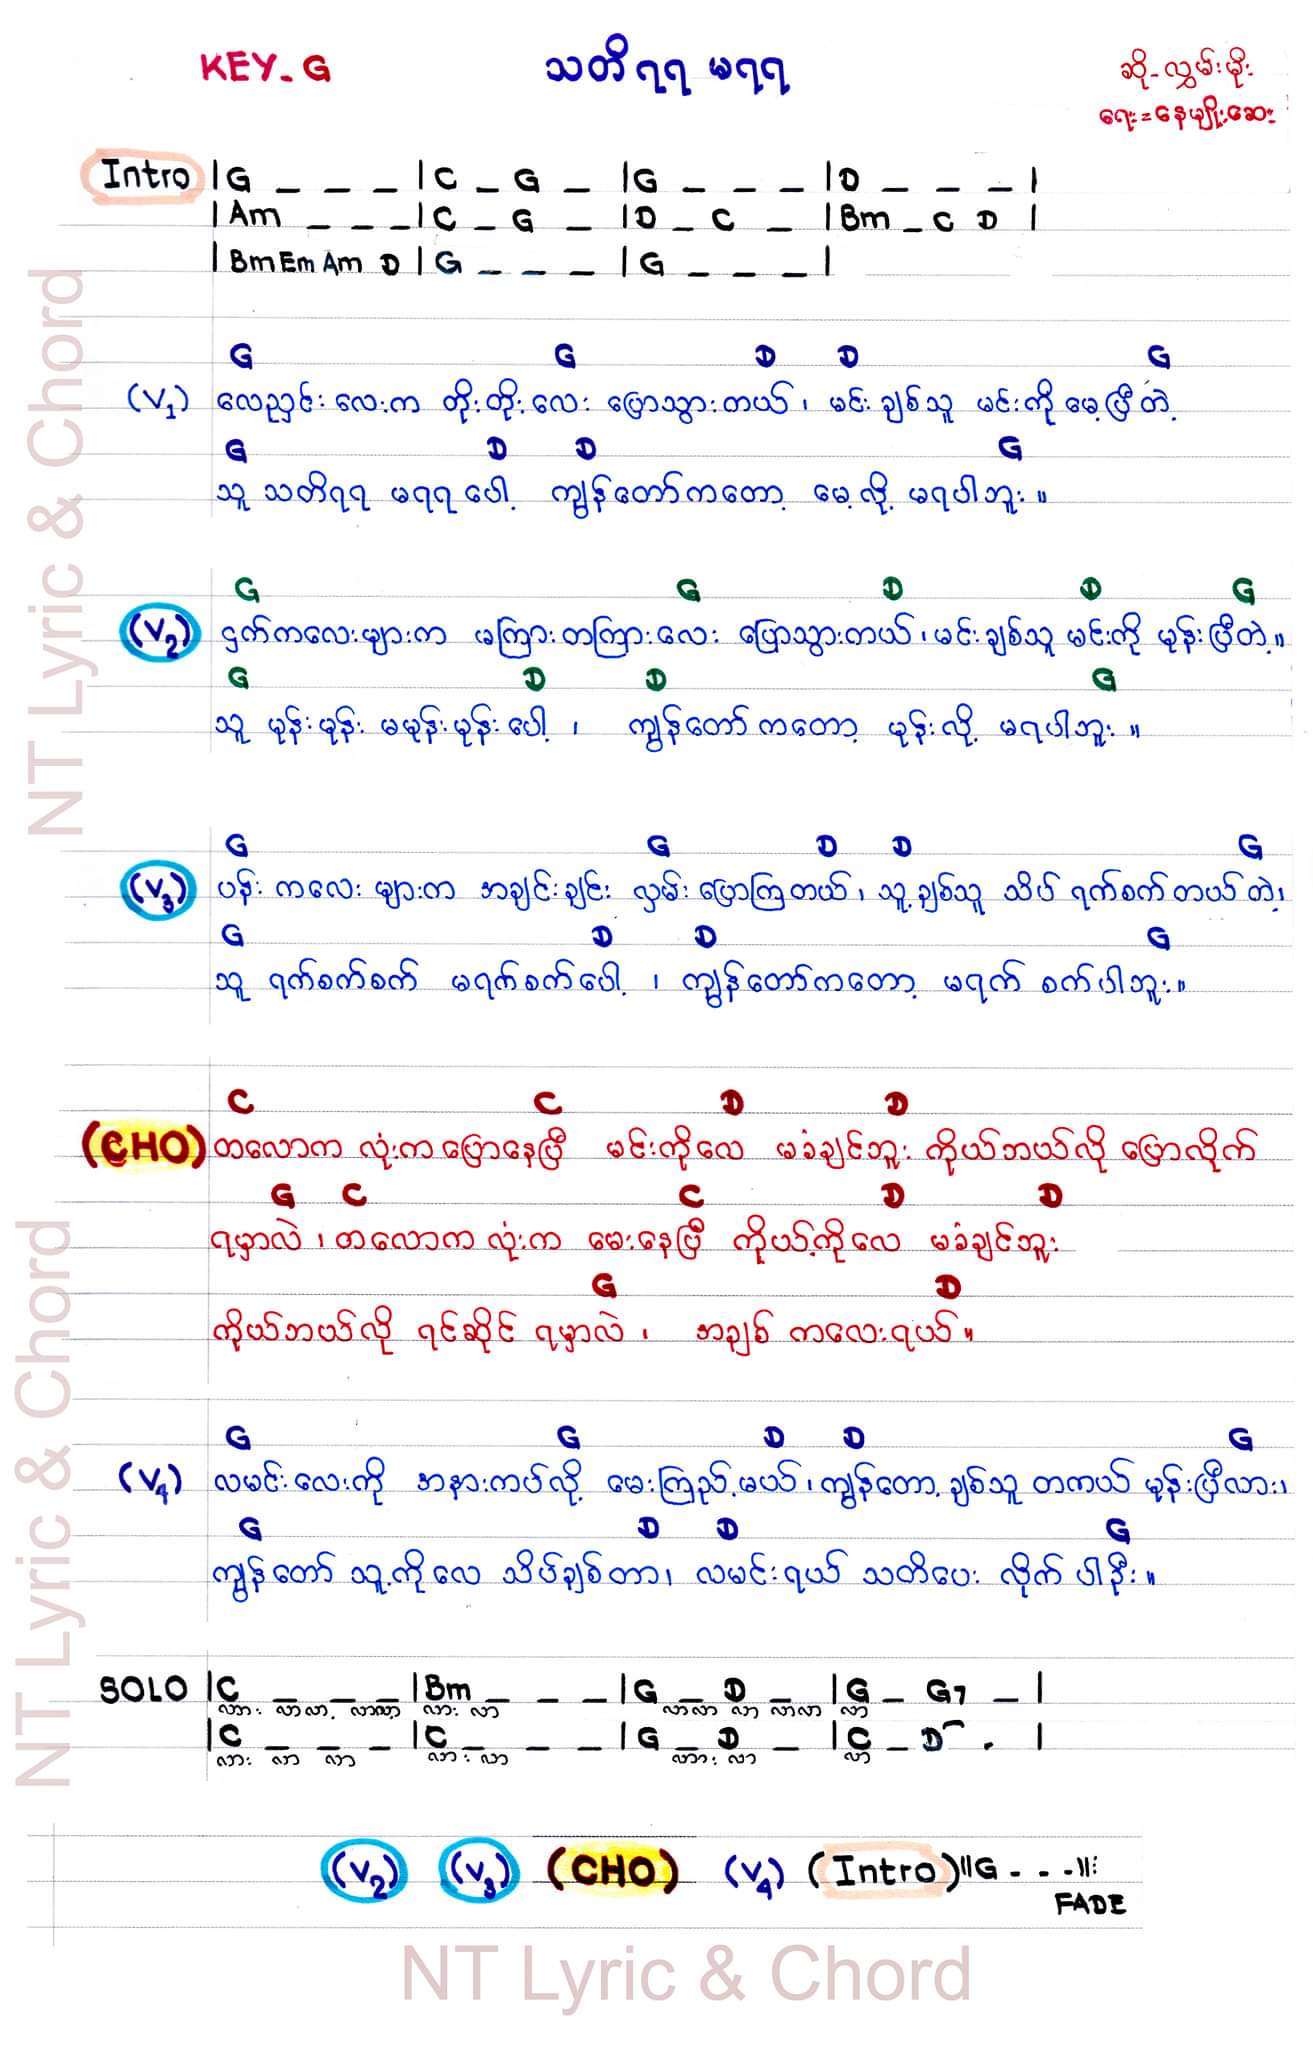 KEY_G
သတိရရ မရရ
ဆို-လွှမ်းမိုး
ရေး=နေမျိုးဆေး
Intro |G _ _ _ |C _ G _ |G _ _ _ |D _ _ _ |
|Am _ _ _ |C _ G _ |D _ C _ |Bm _ C D |
|Bm Em Am D |G _ _ _ |G _ _ _ |
G G D D G
(V1) လေညှင်းလေးက တိုးတိုးလေး ပြောသွားတယ်၊ မင်းချစ်သူ မင်းကို မေ့ပြီတဲ့
G D D G
သူ သတိရရ မရရပေါ့ ကျွန်တော်ကတော့ မေ့လို့ မရပါဘူး။
G G D D G
(V2) ငှက်ကလေးများက မကြားတကြားလေး ပြောသွားတယ်၊ မင်းချစ်သူ မင်းကို မုန်းပြီတဲ့။
G D D G
သူ မုန်းမုန်း မမုန်းမုန်းပေါ့ ၊ ကျွန်တော်ကတော့ မုန်းလို့ မရပါဘူး။
G G D D G
(V3) ပန်းကလေးများက အချင်းချင်း လှမ်းပြောကြတယ်၊ သူ့ချစ်သူ သိပ် ရက်စက်တယ်တဲ့၊
G D D G
သူ ရက်စက်စက် မရက်စက်ပေါ့ ၊ ကျွန်တော်ကတော့ မရက် စက်ပါဘူး။
C C D D
(CHO) တလောက လုံးကပြောနေပြီ မင်းကိုလေ မခံချင်ဘူး ကိုယ်ဘယ်လို ပြောလိုက်
G C C D D
ရမှာလဲ၊ တလောက လုံးက မေးနေပြီ ကိုယ့်ကိုလေ မခံချင်ဘူး
G D
ကိုယ်ဘယ်လို ရင်ဆိုင် ရမှာလဲ ၊ အချစ် ကလေးရယ်။
G G D D G
(V4) လမင်းလေးကို အနားကပ်လို့ မေးကြည့်မယ်၊ ကျွန်တော့ ချစ်သူ တကယ် မုန်းပြီလား၊
G D D G
ကျွန်တော် သူ့ကိုလေ သိပ်ချစ်တာ၊ လမင်းရယ် သတိပေး လိုက်ပါဦး။
SOLO |C _ _ _ |Bm _ _ _ |G _ D _ |G _ G7 _ |
လား လာလာ့ လာလာ လား လာ လာလာ လာ လာလာ လာ
|C _ _ _ |C _ _ _ |G _ D _ |C _ D . |
လား လာ လာ လား လာ လား လာ လာ
(V2) (V3) (CHO) (V4) (Intro) ||G - - -||:
FADE
NT Lyric & Chord
NT Lyric & Chord
NT Lyric & Chord